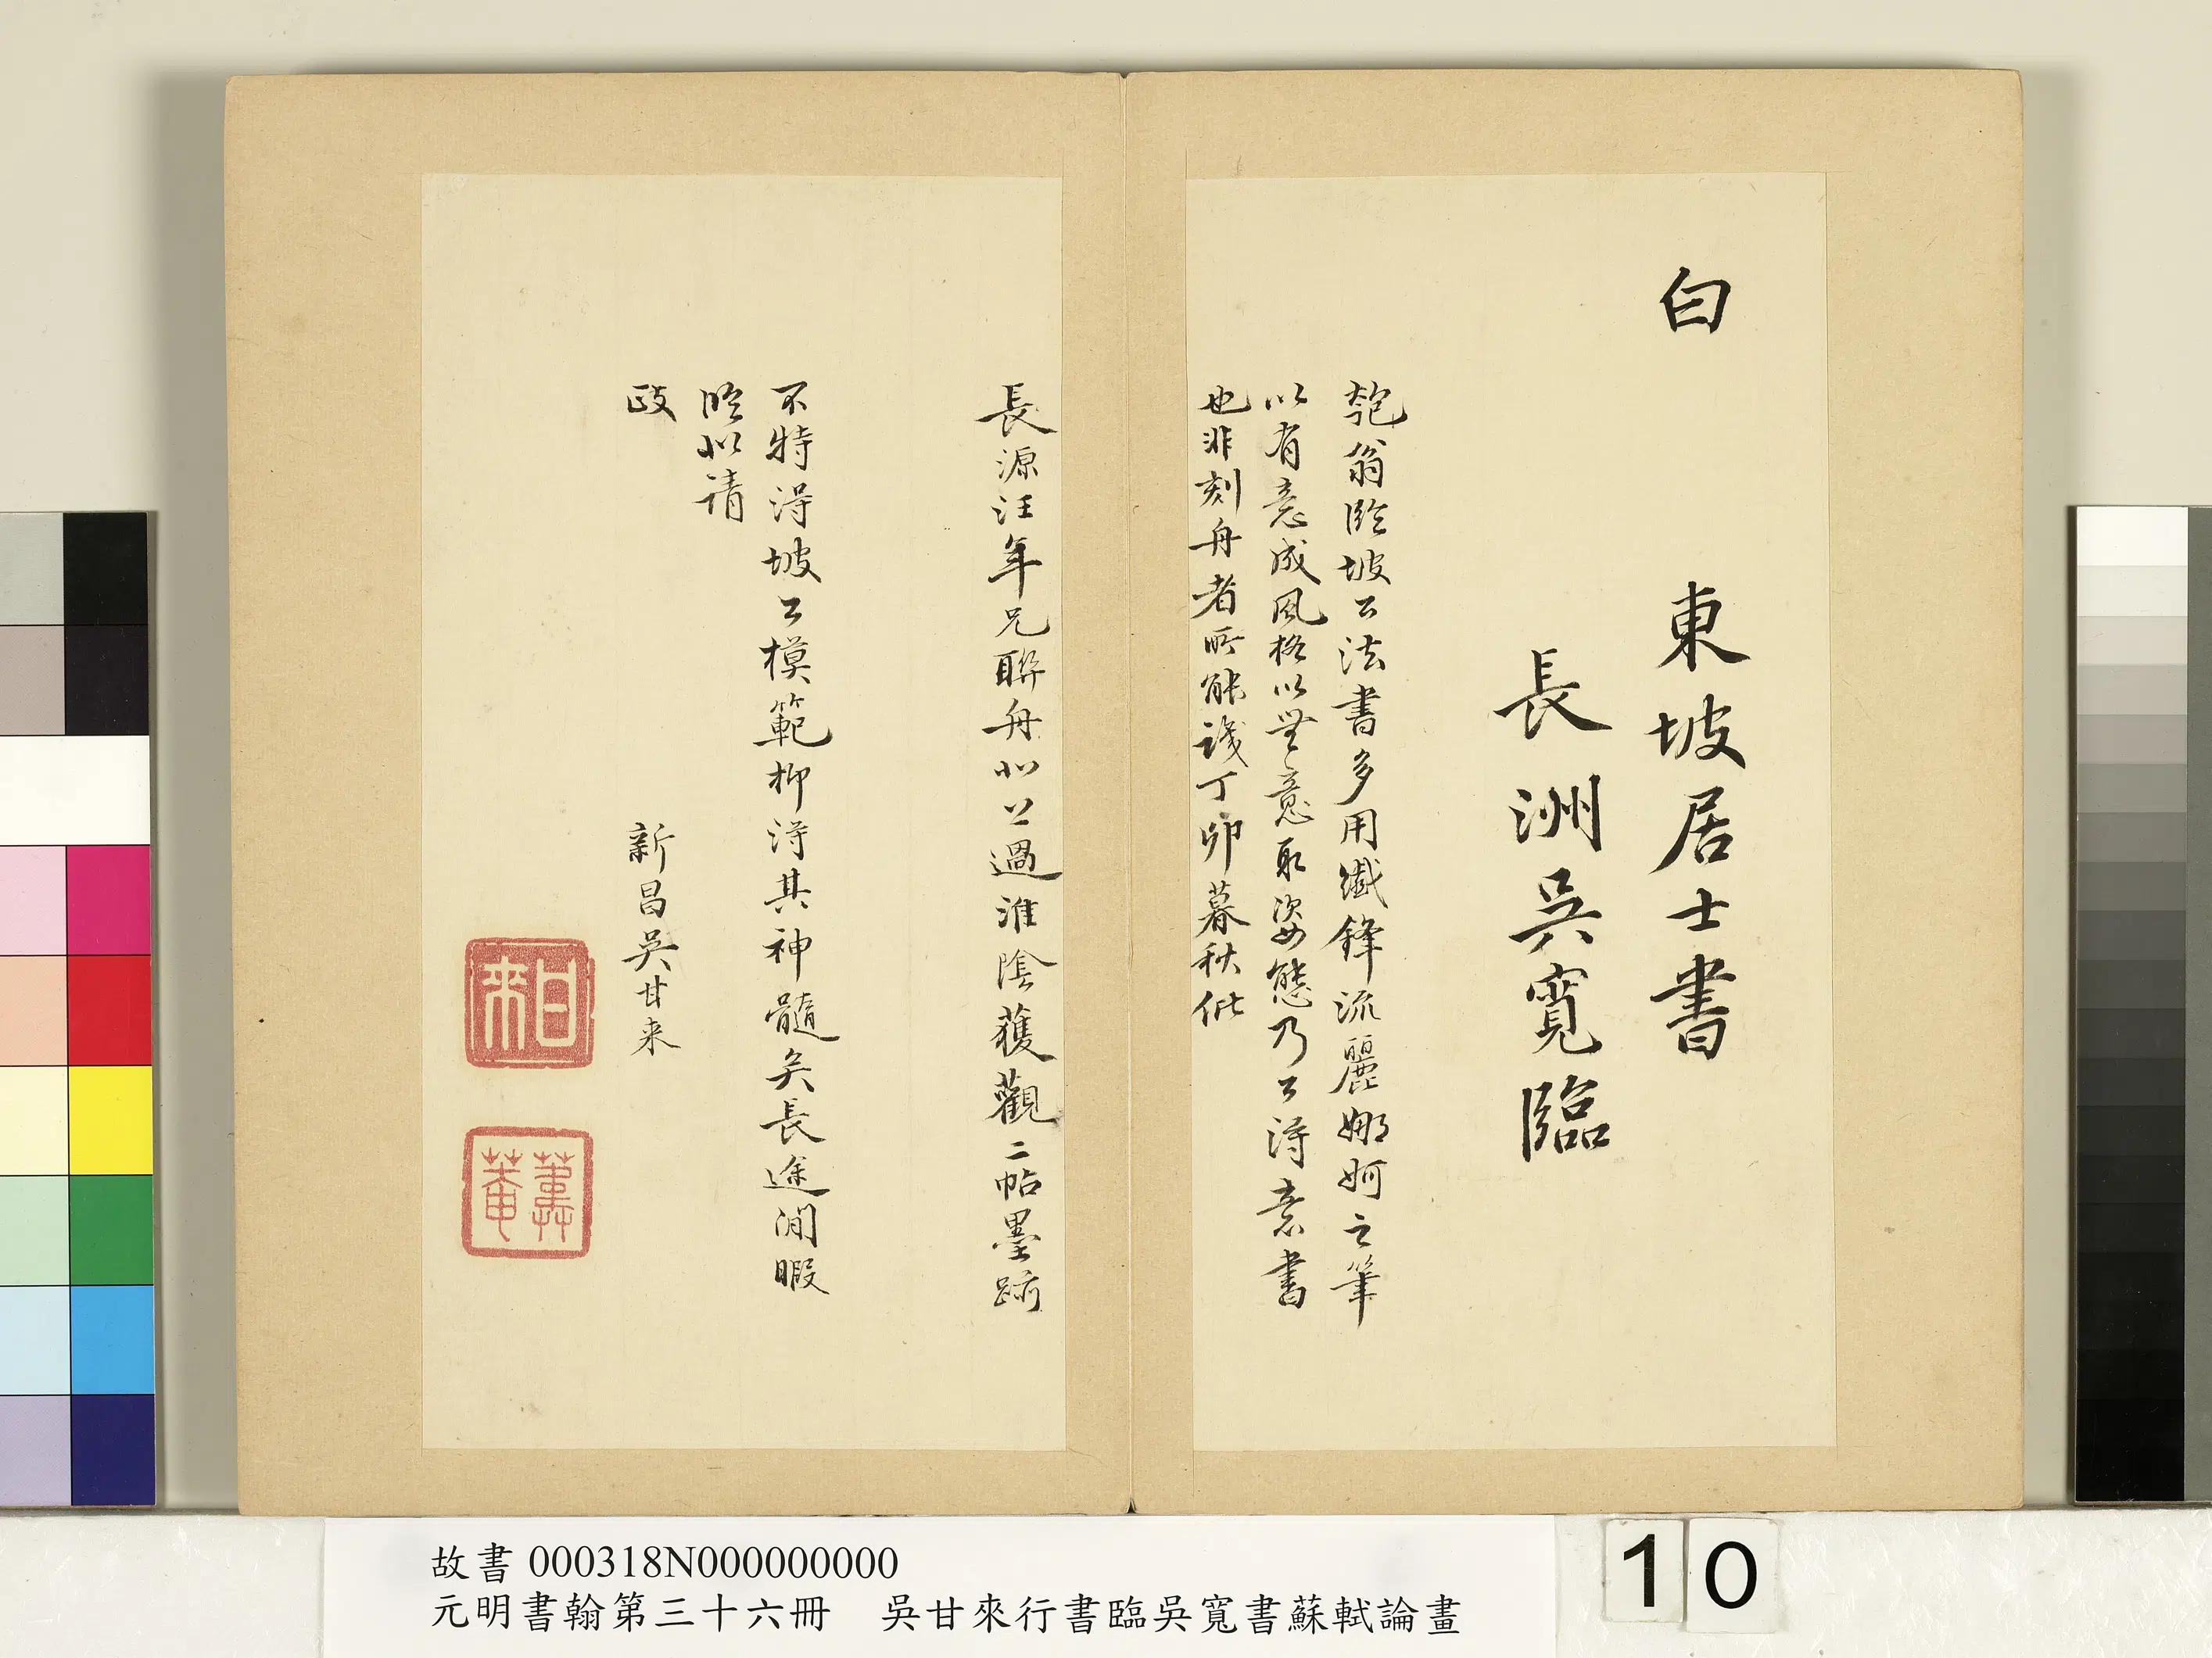 白
東坡居士書
長洲吳寬臨
匏翁臨坡公法書多用纖鋒流麗娜婀之筆
以有意成風格以無意取姿態乃公得意書
也非刻舟者所能識丁卯暮秋偶
長源汪年兄聯舟北上過淮陰獲觀二帖墨跡
不特得坡公模範抑得其神髓矣長途閒暇
臨似請
政
新昌吳甘來
甘來
葦菴
故書 000318N000000000
元明書翰第三十六冊 吳甘來行書臨吳寬書蘇軾論畫
10